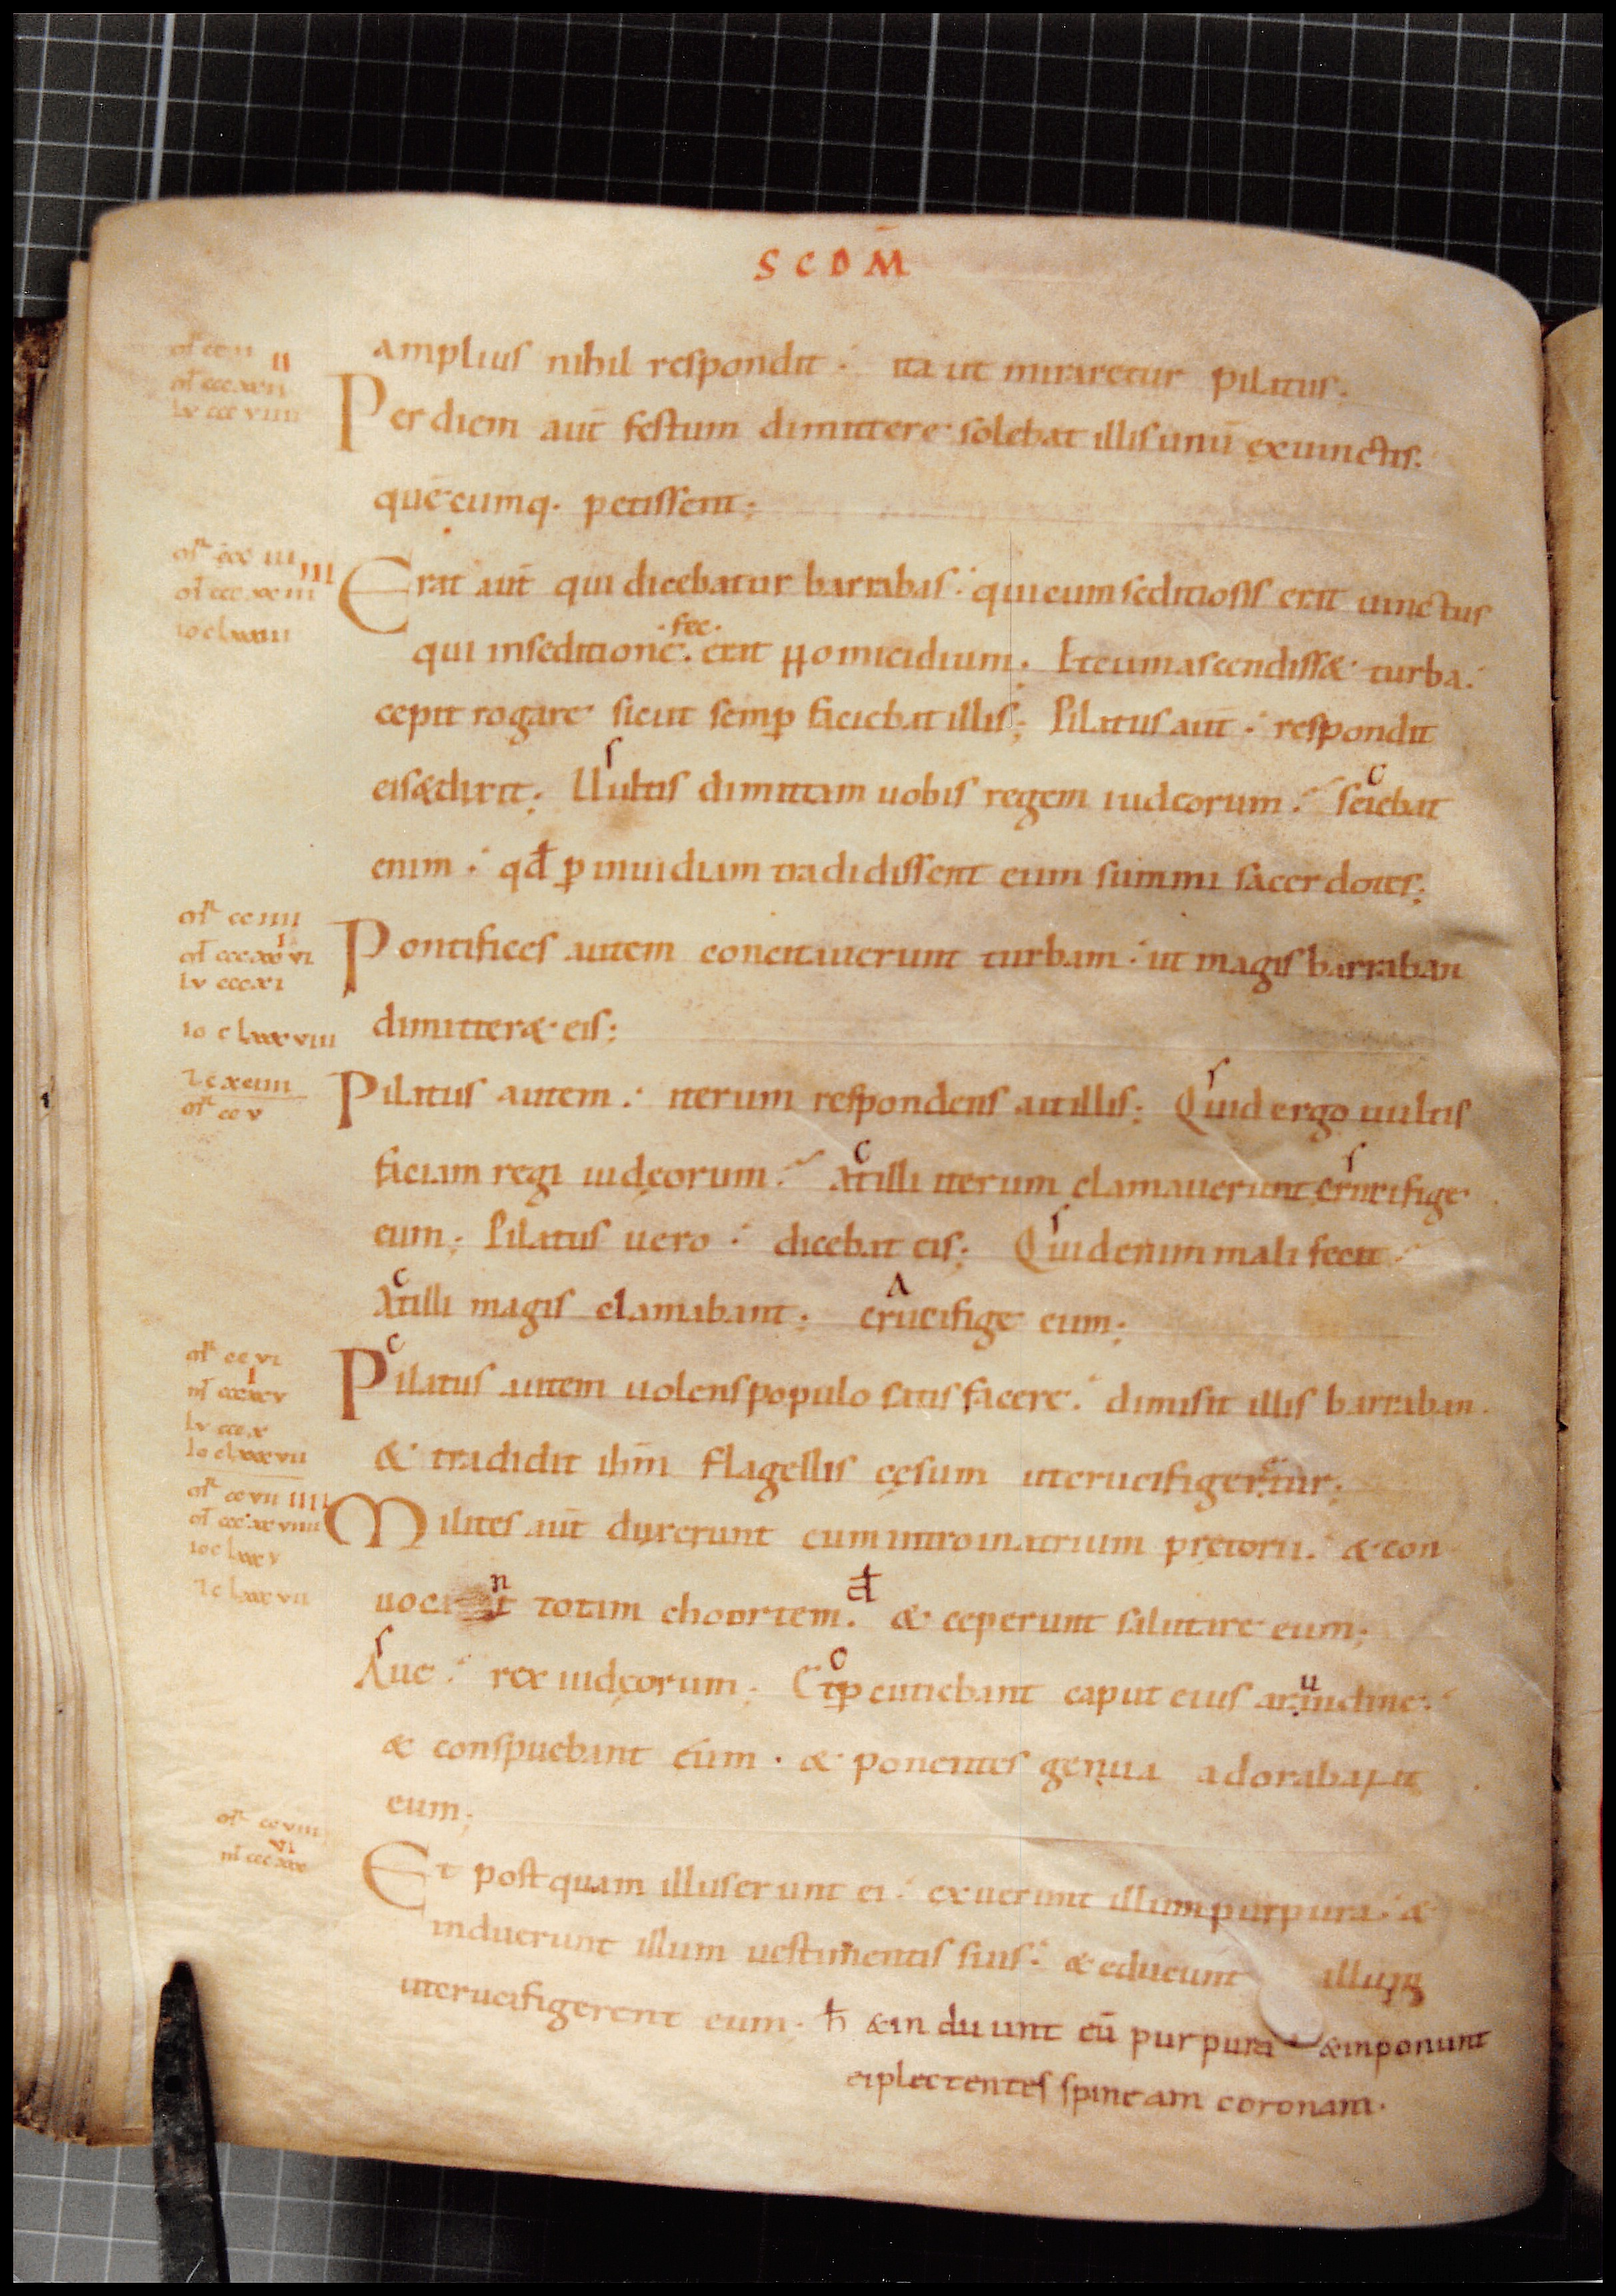 SCDM̄
amplius nihil respondit. ita ut miraretur pilatus.
Per diem aut̄ festum dimittere solebat illis unū ex uinctis.
quēcumq. petissent;
Erat aut̄ qui dicebatur barrabas. qui cum seditiosis erat uinctus
fec.
qui in seditione. erat homicidium. Et cum ascendiss& turba.
cepit rogare sicut semꝑ faciebat illis; Pilatus aut̄. respondit
eis&dixit. Uultis dimittam uobis regem iudęorum. Sciebat
enim. qđ ꝑ inuidiam tradidissent eum summi sacerdotes;
Pontifices autem concitauerunt turbam. ut magis barraban
dimitter& eis;
Pilatus autem. iterum respondens ait illis; Quid ergo uultis
faciam regi iudęorum. At illi iterum clamauerunt crucifige
eum; Pilatus uero. dicebat eis; Quid enim mali fecit
At illi magis clamabant; crucifige eum;
Pilatus autem uolens populo satisfacere. dimisit illis barraban.
& tradidit ihm̄ flagellis cęsum ut crucifigeretur;
Milites aut̄ duxerunt eum intro in atrium pretorii. & con
totam choortem. & ceperunt salutare eum;
Aue. rex iudęorum; Et ꝑcutiebant caput eius arundine.
& conspuebant eum. & ponentes genua adorabant
eum;
Et postquam illuserunt ei. exuerunt illum purpura. &
induerunt illum uestimentis suis. & educunt illum
ut crucifigerent eum. ħ &induunt eū purpura &inponunt
ei plectentes spineam coronam.